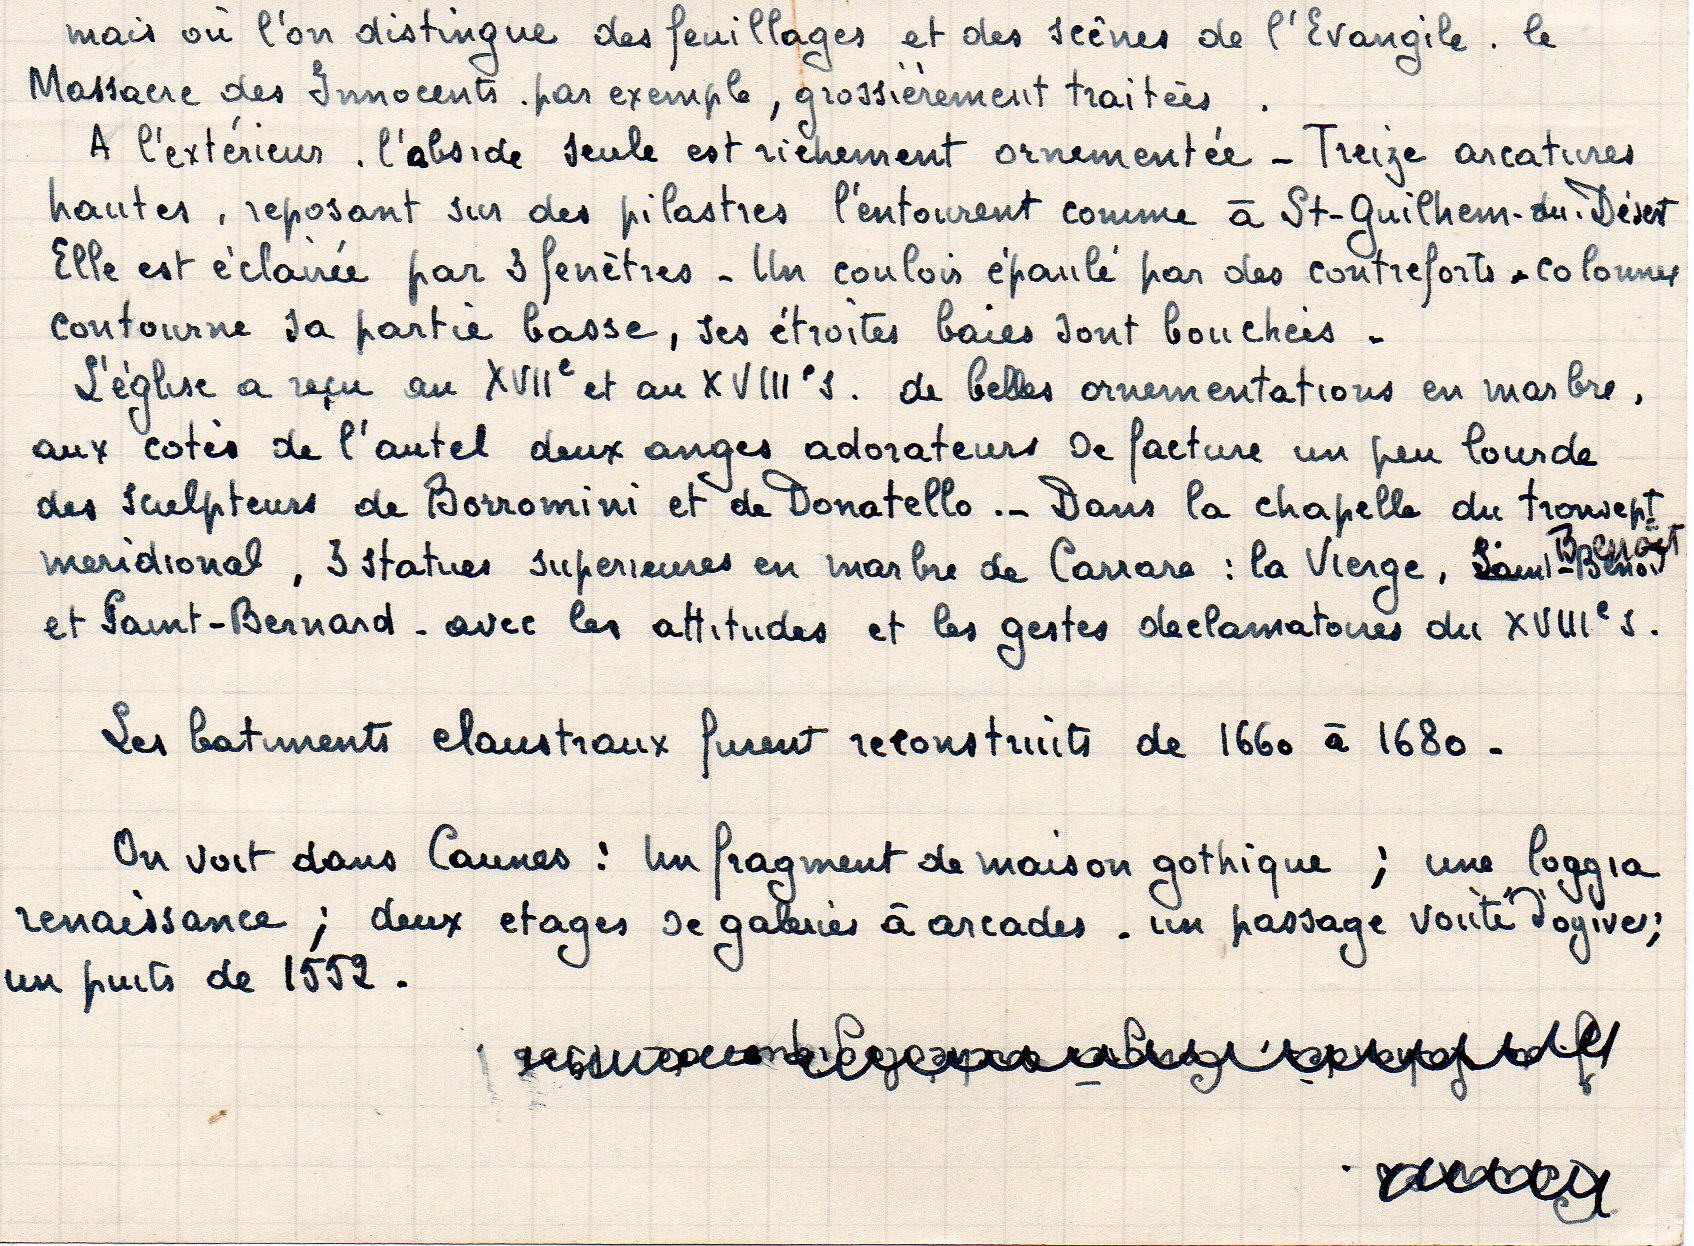 mais où l'on distingue des feuillages et des scênes de l'Evangile. le
Massacre des Innocents. par exemple, grossièrement traitées.
A l'extérieur. l'abside seule est richement ornementée - Treize arcatures
hautes, reposant sur des pilastres l'entourent comme à St-Guilhem-du-Désert
Elle est éclairée par 3 fenêtres - Un couloir épaulé par des contreforts-colonnes
contourne sa partie basse, ses étroites baies sont bouchées -
L'église a reçu au XVIIe et au XVIIIe s. de belles ornementations en marbre,
aux cotés de l'autel deux anges adorateurs de facture un peu lourde
des sculpteurs de Borromini et de Donatello .- Dans la chapelle du transept
meridional, 3 statues superieures en marbre de Carrare : la Vierge, Saint-Benoit
et Saint-Bernard - avec les attitudes et les gestes declamatoires du XVIIIe s.
Les batiments claustraux furent reconstruits de 1660 à 1680 -
On voit dans Caunes : Un fragment de maison gothique ; une loggia
renaissance ; deux etages de galeries à arcades - un passage vouté d'ogives ;
un puits de 1552.